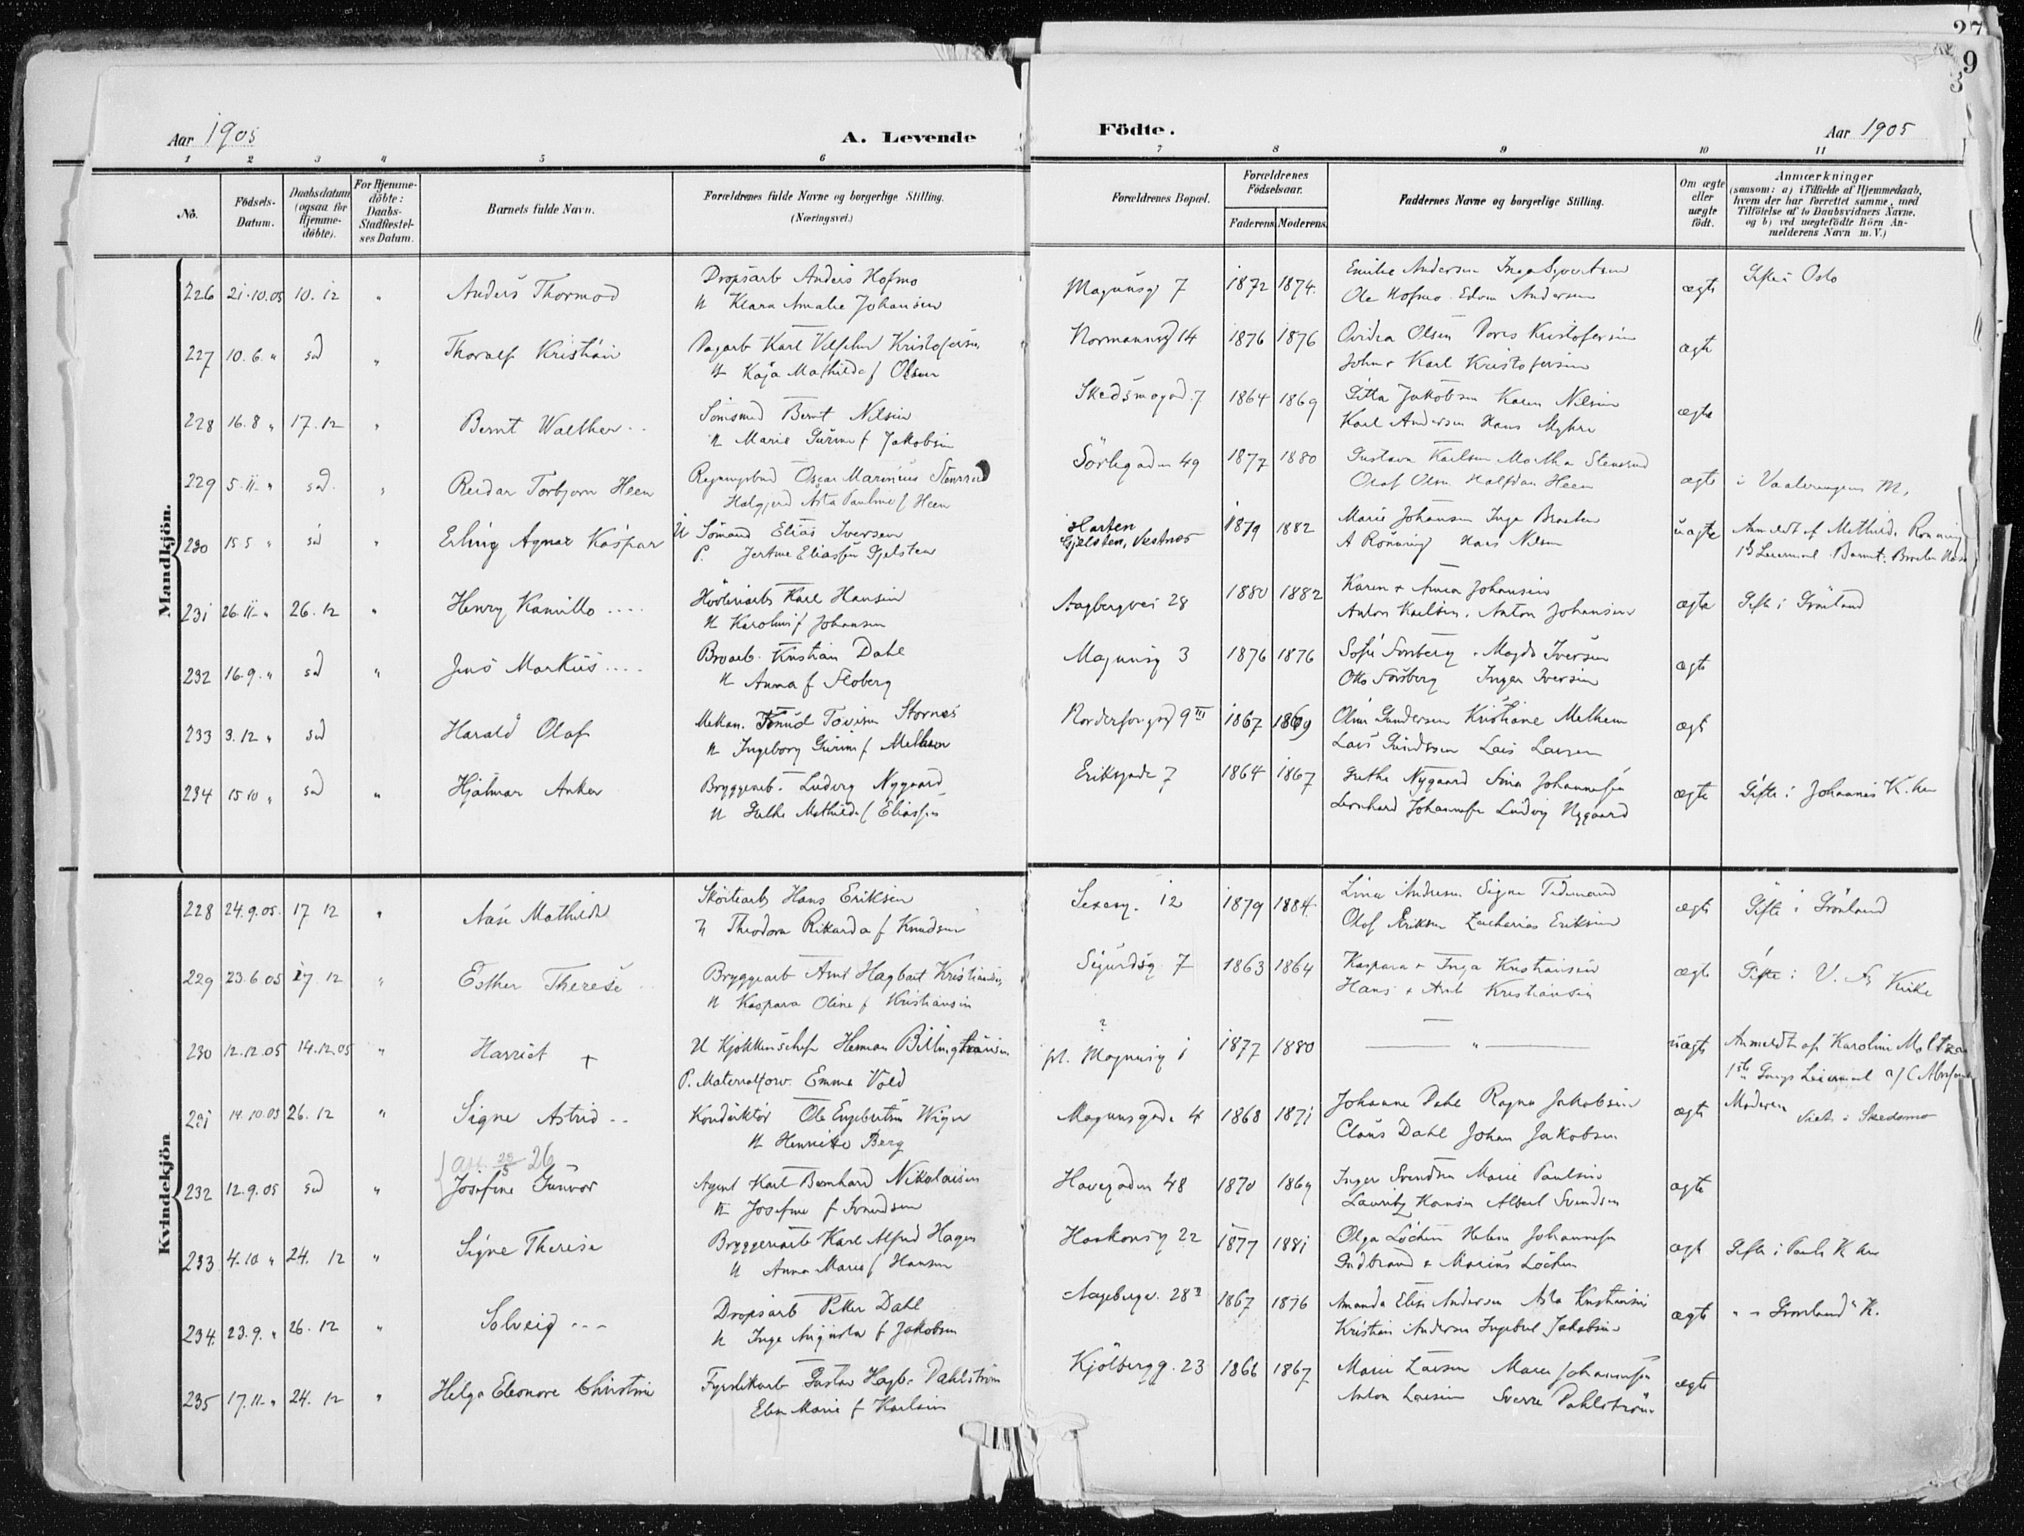 27
9
3
Aar 1905 A. Levende Födte. Aar 1905
1 2 3 4 5 6 7 8 9 10 11
No. Födsels-Datum. Daabsdatum (ogsaa for Hjemme-döbte). For Hjemme-döbte: Daabs-Stadfæstel-ses Datum. Barnets fulde Navn. Forældrenes fulde Navne og borgerlige Stilling. (Næringsvei.) Forældrenes Bopæl. Forældrenes Födselsaar. Faderens Moderens. Faddernes Navne og borgerlige Stilling. Om ægte eller uægte födt. Anmærkninger (saasom: a) i Tilfælde af Hjemmedaab, hvem der har forrettet samme, med Tilföielse af to Daabsvidners Navne, og b) ved uægtefödte Börn An-melderens Navn m. V.)
Mandkjön.
226 21.10.05 10.12 " Anders Thormod Dropsarb Anders Hofmo Magnusg 7 1872 1874 Emilie Andersen Inga Syvertsen ægte Gifte i Oslo
H Klara Amalie Johansen Ole Hofmo Edvin Andersen
227 10.6. " sd " Thoralf Kristian Dagarb Karl Vilhelm Kristofersen Normannsg 14 1876 1876 Ovidia Olsen Doris Kristofersen ægte
H Kaja Mathilde f Olsen John + Karl Kristofersen
228 16.8 " 17.12 " Bernt Walther Sömsmed Bernt Nilsen Skedsmogad. 7 1864 1869 Gitta Jakobsen Karen Nilsen ægte
H Marie Gurine f Jakobsen Karl Andersen Hans Myhre
229 5.11. " sd " Reidar Torbjorn Heen Regningsbud Oscar Marinius Stensrud Sörligaden 49 1877 1880 Gustava Karlsen Martha Stensrud ægte i Vaalerengens M.
Halgjerd Asta Pauline f Heen Olaf Olsen Halfdan Heen
230 15 5 " sd " Erling Agnar Kaspar U Sömand Elias Iversen Harten Gjelsten, Vestnes 1879 1882 Marie Johansen Inga Braaten uægte Anmeldt af Mathilde Ronning
P. Jertine Eliassen Gjelsten A Rönning Hans Nilsen 1ste Leiermaal
231 26.11 " 26.12 " Henry Kamillo Karl Hansen Aagbergvei 28 1880 1882 Karen + Anna Johansen ægte Gifte i Grönland
H Karoline f Johansen Anton Karlsen. Anton Johansen
232 16.9. " sd " Jens Markus Broarb. Kristian Dahl Magnusg 3 1876 1876 Sofie Forsberg Magda Iversen ægte
H Anna f Floberg Otto Forsberg Inger Iversen
233 3.12 " sd " Harald Olaf Mekan. Knud Tovisen Stornes Norderhovgd 9 III 1867 1869 Oline Gundersen Kristiane Melhem ægt
H Ingeborg Gurine f Melhem Lars Gundersen Lars Larsen
234 15 10 " sd " Hjalmar Anker Bryggerarb. Ludvig Nygaard Eriksgade 7 1864 1867 Grethe Nygaard Sina Johannesen ægte Gifte i Johannes K. her
H Grethe Mathilde f Eliassen Leonhard Johannesen Ludvig Nygaard
Kvindekjön
228 24.9.05. 17 12 " Aase Mathilde Skotöiarb Hans Eriksen Sexesg. 12 1879 1884 Lina Andresen Signe Tidemand ægte Gifte i Grönland
H Theodora Rikarda f Knudsen Olaf Eriksen Zacharias Eriksen
229 23.6 05 17 12 " Esther Therese Bryggearb Arnt Hagbart Kristiansen Sigurdsg. 7 1863 1864 Kaspara + Inga Kristiansen ægte Gifte i V. A. Kirke
H Kaspara Oline f Kristiansen Hans + Arnt Kristiansen
230 12.12.05 14.12.05 " Harriet + U Kjökkenschef Herman pt. Magnusg 1 ? 1877 1880 " uægte Anmeldt af Karoline Moltzen
P. Materialforv. Emma Vold 1ste Gangs Leiermaal
231 14.10.05 26.12 " Signe Astrid Konduktör Ole Engebretsen Wiger Magnusgade 4 1868 1871 Johanne Dahl Ragna Jakobsen ægte Moderen Viet i Skedsmo
H Henrikke Berg Claus Dahl Johan Jakobsen
26
232 12.9.05 sd " Josefine Gunvor Agent Karl Bernhard Nikolaisen Havegaden 48 1870 1869 Inger Svendsen Marie Paulsen ægte
H Josefine f Svendsen Lauritz Hansen Albert Svendsen
233 4.10 " 24. 12 " Signe Therese Bryggeriarb Karl Alfred Hagen Haakonsg 22 1877 1881 Olga Löchen Helene Johannesen ægt Gifte i Pauls K her
H Anna Marie f Hansen Gudbrand + Marius Löchen
234. 23.9. " 26.12 " Solveig Dropsarb Peter Dahl Aagebergv. 28 II 1867 1876 Amanda Elise Andersen Asta Kristiansen ægte " - Grönlands K.
H Inga Augusta f Jakobsen Kristian Andersen Ingebret Jakobsen
235 17.11 " 24. 12 " Helga Eleonore Christine Fyrstikarb Gustav Hagb. Dahlström Kjölbergg. 23 1866 1867 Marie Larsen Maren Johannesen ægte
Elen Marie f Karlsen Anton Larsen Sverre Dahlström